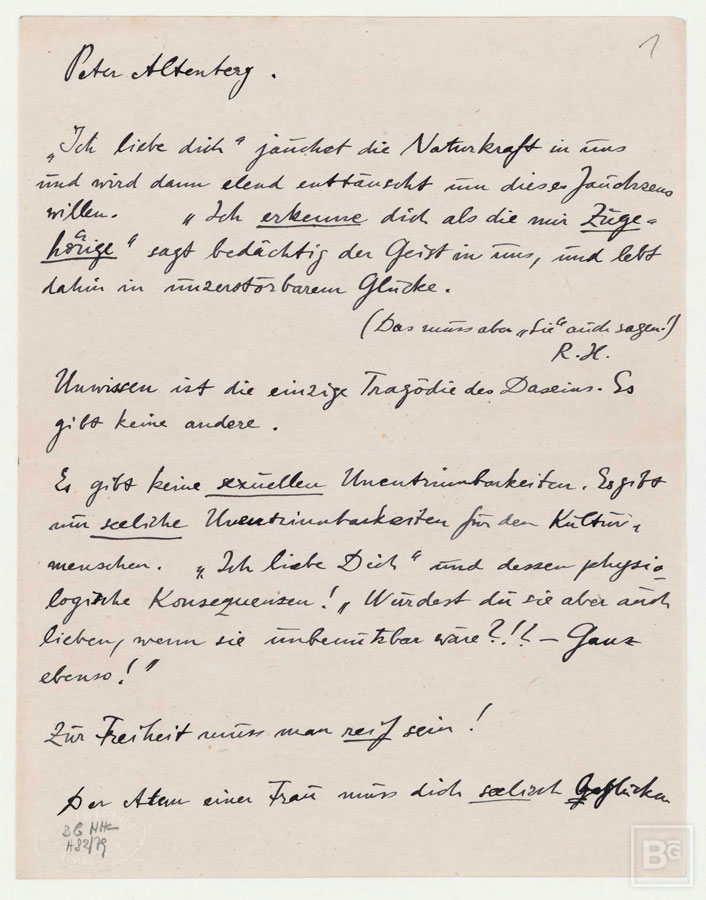 1
Peter Altenberg.
„Ich liebe dich“ jauchzt die Naturkraft in uns
und wird dann elend enttäuscht um dieses Jauchzens
willen. „Ich erkenne dich als die mir Zuge-
hörige“ sagt bedächtig der Geist in uns, und lebt
dahin in unzerstörbarem Glücke.
(Das muss aber „Sie“ auch sagen!)
R. H.
Unwissen ist die einzige Tragödie des Daseins. Es
gibt keine andere.
Es gibt keine sexuellen Unentrinnbarkeiten. Es gibt
nur seeliche Unentrinnbarkeiten für den Kultur-
menschen. „Ich liebe Dich“ und dessen physio-
logische Konsequenzen! „Würdest du sie aber auch
lieben, wenn sie unbenutzbar wäre?!! – Ganz
ebenso!“
Zur Freiheit muss man reif sein!
Der Atem einer Frau muss dich seelisch beglücken
BG NHe
H82/79
BG